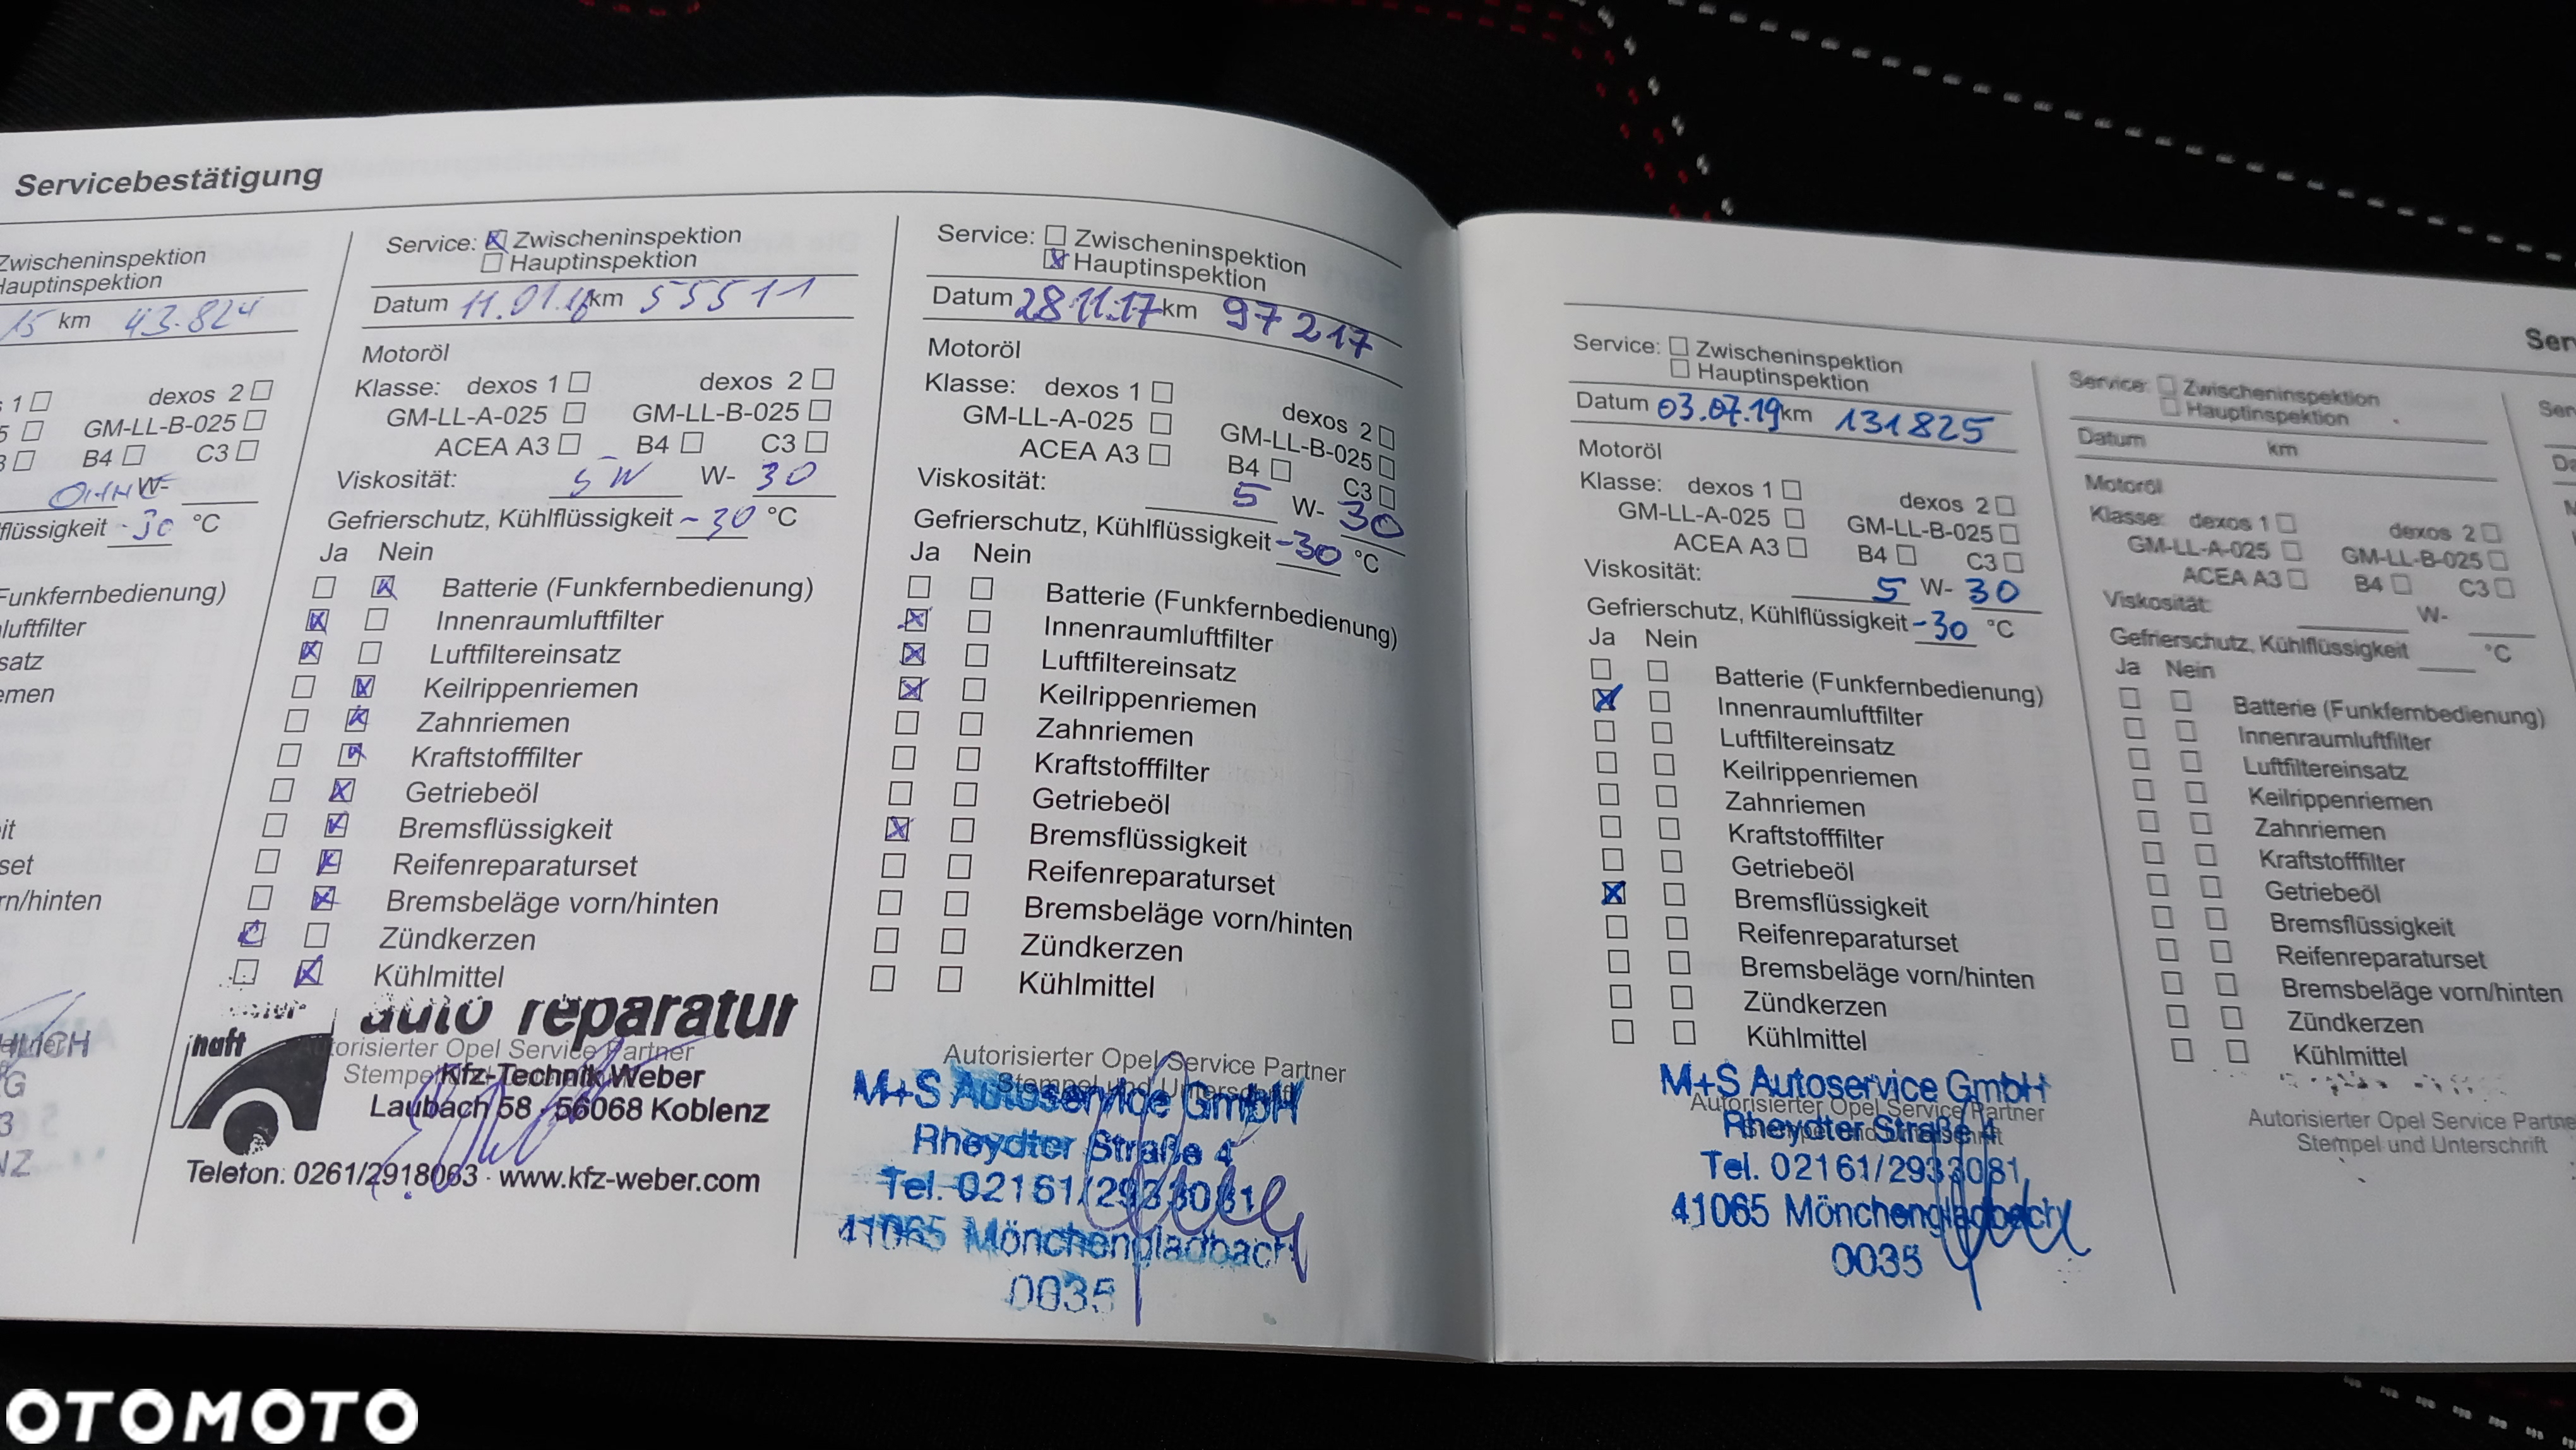 Servicebestätigung
Zwischeninspektion
Hauptinspektion
15 km 43.824
1 ☐ dexos 2 ☐
5 ☐ GM-LL-B-025 ☐
3 ☐ B4 ☐ C3 ☐
OHNE W-
flüssigkeit -30 °C
Funkfernbedienung)
luftfilter
satz
emen
it
set
rn/hinten
Service: ☒ Zwischeninspektion
☐ Hauptinspektion
Datum 11.01.16 km 55511
Motoröl
Klasse: dexos 1 ☐ dexos 2 ☐
GM-LL-A-025 ☐ GM-LL-B-025 ☐
ACEA A3 ☐ B4 ☐ C3 ☐
Viskosität: 5W W- 30
Gefrierschutz, Kühlflüssigkeit -30 °C
Ja Nein
☐ ☒ Batterie (Funkfernbedienung)
☒ ☐ Innenraumluftfilter
☒ ☐ Luftfiltereinsatz
☐ ☒ Keilrippenriemen
☐ ☒ Zahnriemen
☐ ☒ Kraftstofffilter
☐ ☒ Getriebeöl
☐ ☒ Bremsflüssigkeit
☐ ☒ Reifenreparaturset
☐ ☒ Bremsbeläge vorn/hinten
☒ ☐ Zündkerzen
☐ ☒ Kühlmittel
auto reparatur
haft
Autorisierter Opel Service Partner
Kfz-Technik Weber
Laubach 58 · 56068 Koblenz
Telefon: 0261/2918063 · www.kfz-weber.com
Service: ☐ Zwischeninspektion
☒ Hauptinspektion
Datum 28.11.17 km 97217
Motoröl
Klasse: dexos 1 ☐ dexos 2 ☐
GM-LL-A-025 ☐ GM-LL-B-025 ☐
ACEA A3 ☐ B4 ☐ C3 ☐
Viskosität: 5 W- 30
Gefrierschutz, Kühlflüssigkeit -30 °C
Ja Nein
☐ ☐ Batterie (Funkfernbedienung)
☒ ☐ Innenraumluftfilter
☒ ☐ Luftfiltereinsatz
☒ ☐ Keilrippenriemen
☐ ☐ Zahnriemen
☐ ☐ Kraftstofffilter
☐ ☐ Getriebeöl
☒ ☐ Bremsflüssigkeit
☐ ☐ Reifenreparaturset
☐ ☐ Bremsbeläge vorn/hinten
☐ ☐ Zündkerzen
☐ ☐ Kühlmittel
Autorisierter Opel Service Partner
Stempel und Unterschrift
M+S Autoservice GmbH
Rheydter Straße 4
Tel. 02161/2933081
41065 Mönchengladbach
0035
Ser
Service: ☐ Zwischeninspektion
☐ Hauptinspektion
Datum 03.07.19 km 131825
Motoröl
Klasse: dexos 1 ☐ dexos 2 ☐
GM-LL-A-025 ☐ GM-LL-B-025 ☐
ACEA A3 ☐ B4 ☐ C3 ☐
Viskosität: 5 W- 30
Gefrierschutz, Kühlflüssigkeit -30 °C
Ja Nein
☐ ☐ Batterie (Funkfernbedienung)
☒ ☐ Innenraumluftfilter
☐ ☐ Luftfiltereinsatz
☐ ☐ Keilrippenriemen
☐ ☐ Zahnriemen
☐ ☐ Kraftstofffilter
☐ ☐ Getriebeöl
☒ ☐ Bremsflüssigkeit
☐ ☐ Reifenreparaturset
☐ ☐ Bremsbeläge vorn/hinten
☐ ☐ Zündkerzen
☐ ☐ Kühlmittel
M+S Autoservice GmbH
Autorisierter Opel Service Partner
Rheydter Straße 4
Tel. 02161/2933081
41065 Mönchengladbach
0035
Service: ☐ Zwischeninspektion
☐ Hauptinspektion
Datum km
Motoröl
Klasse: dexos 1 ☐ dexos 2 ☐
GM-LL-A-025 ☐ GM-LL-B-025 ☐
ACEA A3 ☐ B4 ☐ C3 ☐
Viskosität: W-
Gefrierschutz, Kühlflüssigkeit °C
Ja Nein
☐ ☐ Batterie (Funkfernbedienung)
☐ ☐ Innenraumluftfilter
☐ ☐ Luftfiltereinsatz
☐ ☐ Keilrippenriemen
☐ ☐ Zahnriemen
☐ ☐ Kraftstofffilter
☐ ☐ Getriebeöl
☐ ☐ Bremsflüssigkeit
☐ ☐ Reifenreparaturset
☐ ☐ Bremsbeläge vorn/hinten
☐ ☐ Zündkerzen
☐ ☐ Kühlmittel
Autorisierter Opel Service Partne
Stempel und Unterschrift
OTOMOTO